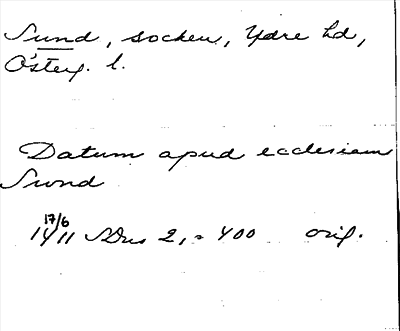 Sund, socken, Ydre hd,
Österg. l.
Datum apud ecclesiam
Swnd
17/6
1411 SDns 2, s 400 orig.